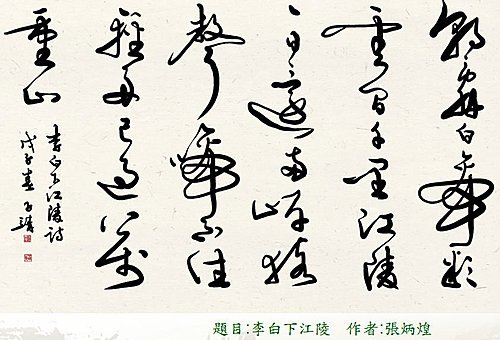 朝辭白帝彩
雲間千里江陵
一日還兩岸猿
聲啼不住
輕舟已過萬
重山
李白下江陵詩
戊子春
題目:李白下江陵 作者:張炳煌